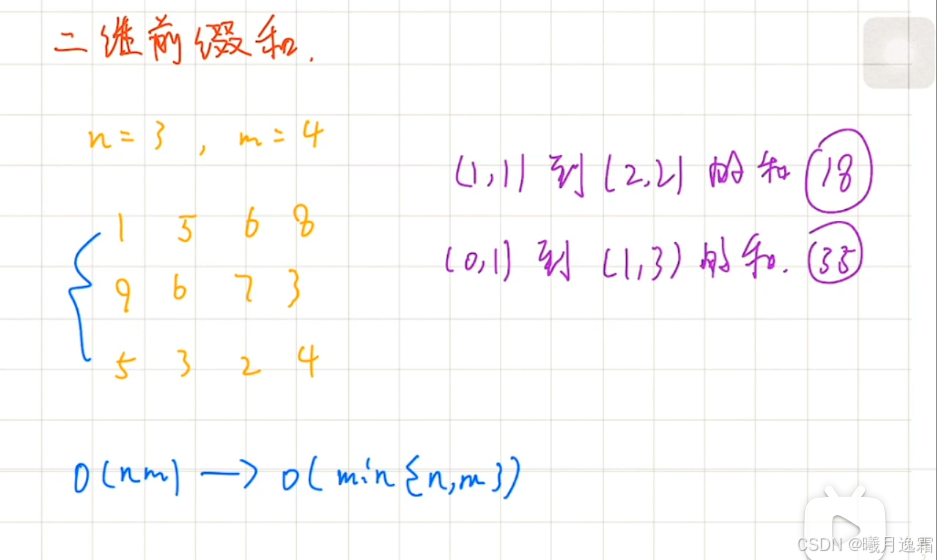 二维前缀和.
n=3 , m=4
(1,1) 到 (2,2) 的和 18
(0,1) 到 (1,3) 的和. 35
1 5 6 8
9 6 7 3
5 3 2 4
O(nm) → O(min{n,m})
CSDN @曦月逸霜